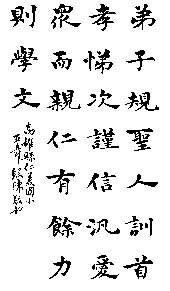 弟子規聖人訓首
孝悌次謹信汎愛
眾而親仁有餘力
則學文
高雄縣仁美國小